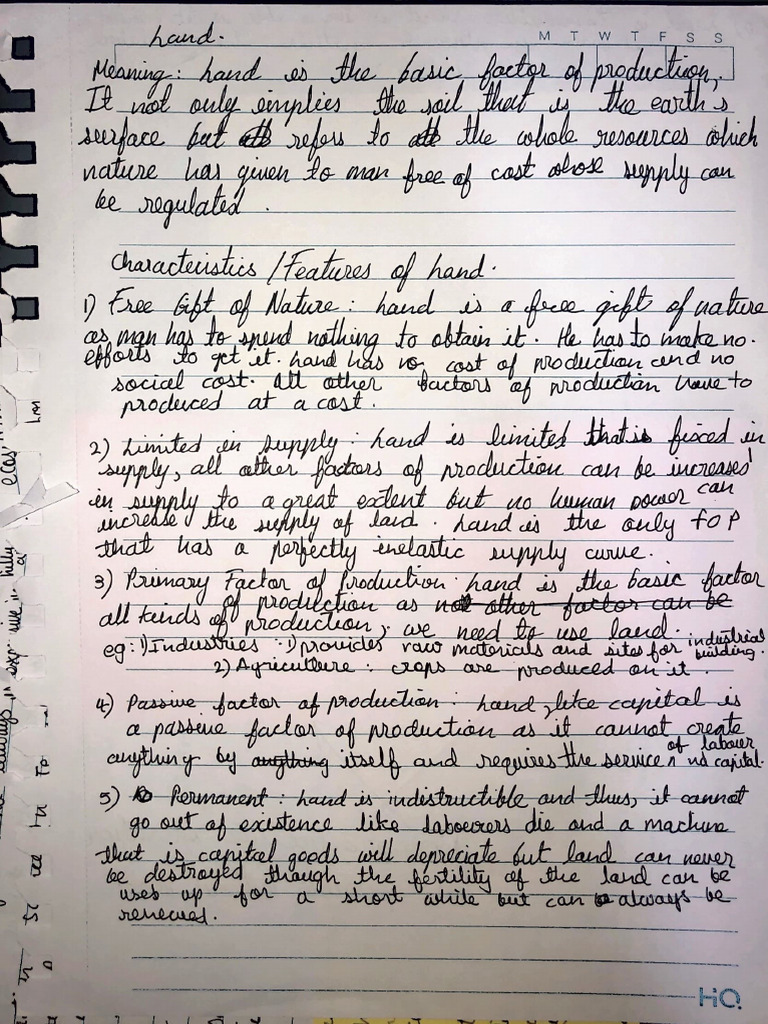 Land.
M T W T F S S
Meaning: Land is the basic factor of production,
It not only implies the soil that is the earth's
surface but refers to the whole resources which
nature has given to man free of cost whose supply can
be regulated.
Characteristics / Features of Land.
1) Free Gift of Nature: Land is a free gift of nature
as man has to spend nothing to obtain it. He has to make no.
efforts to get it. Land has no cost of production and no
social cost. All other factors of production have to
produced at a cost.
2) Limited in supply: Land is limited that is fixed in
supply, all other factors of production can be increased
in supply to a great extent but no human power can
increase the supply of land. Land is the only FOP
that has a perfectly inelastic supply curve.
3) Primary Factor of Production: Land is the basic factor
of production as not other factor can be
all kinds of production, we need to use land.
eg: 1) Industries: 1) provides raw materials and sites for industrial building.
2) Agriculture: crops are produced on it.
4) Passive factor of production: Land, like capital is
a passive factor of production as it cannot create
anything by anything itself and requires the service of labour nd capital.
5) Permanent: Land is indistructible and thus, it cannot
go out of existence like labourers die and a machine
that is capital goods will depreciate but land can never
be destroyed though the fertility of the land can be
uses up for a short while but can always be
renewed.
HQ